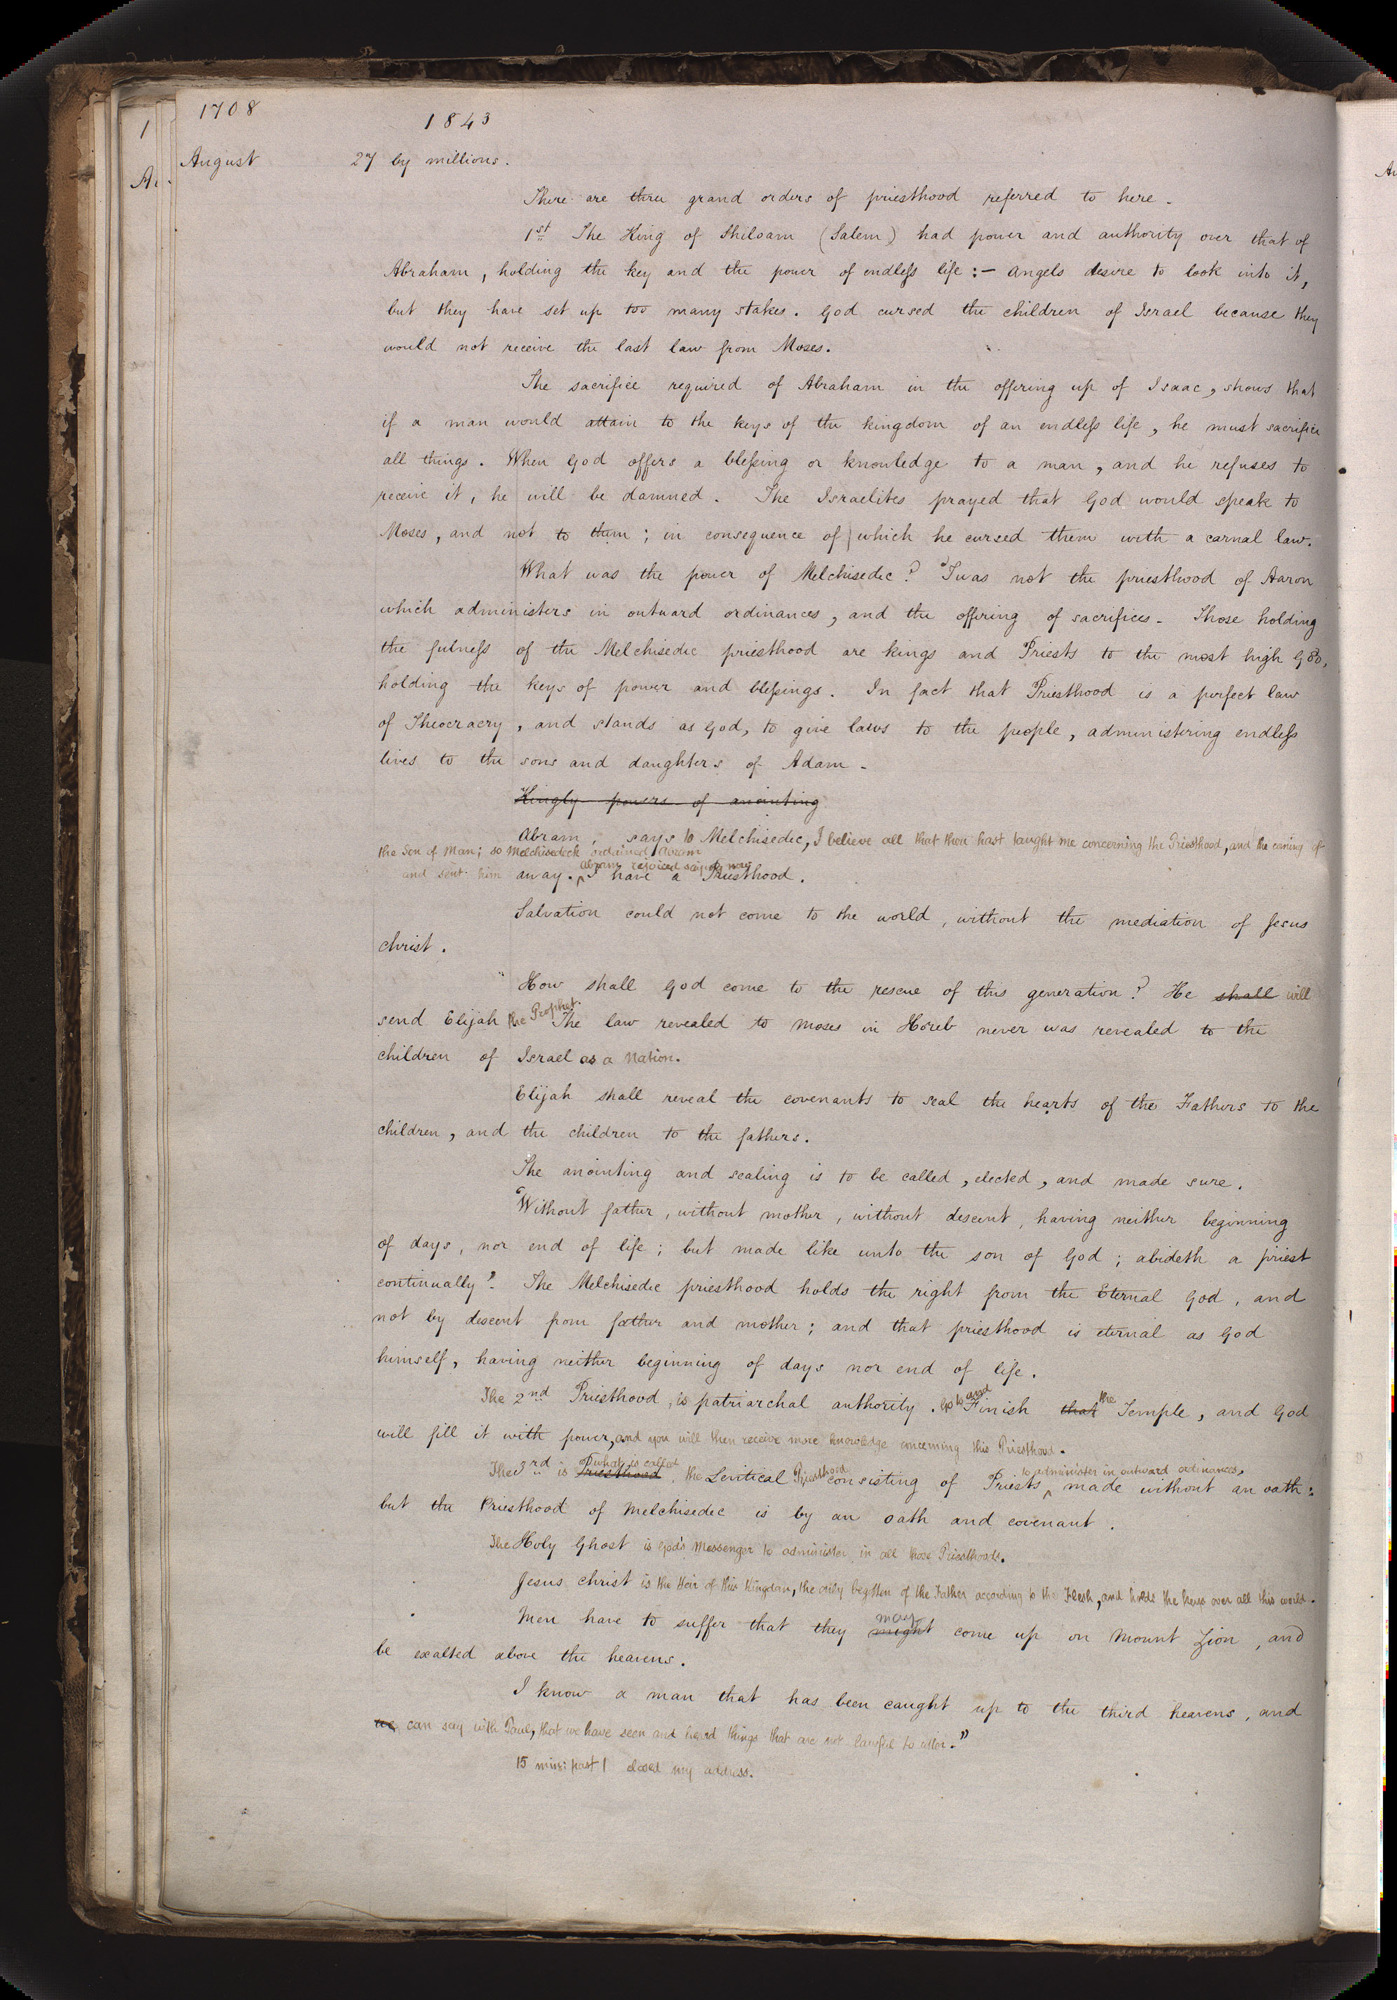 1708
1843
August 27 by millions.
There are three grand orders of priesthood referred to here.
1st The King of Shiloam (Salem) had power and authority over that of
Abraham, holding the key and the power of endless life:— angels desire to look into it,
but they have set up too many stakes. God cursed the children of Israel because they
would not receive the last law from Moses.
The sacrifice required of Abraham in the offering up of Isaac, shows that
if a man would attain to the keys of the kingdom of an endless life, he must sacrifice
all things. When God offers a blessing or knowledge to a man, and he refuses to
receive it, he will be damned. The Israelites prayed that God would speak to
Moses, and not to them; in consequence of which he cursed them with a carnal law.
What was the power of Melchisedec? 'Twas not the priesthood of Aaron
which administers in outward ordinances, and the offering of sacrifices. Those holding
the fulness of the Melchisedec priesthood are kings and Priests to the most high God,
holding the keys of power and blessings. In fact that Priesthood is a perfect law
of Theocracy, and stands as God, to give laws to the people, administering endless
lives to the sons and daughters of Adam.
Kingly powers of anointing
Abram says to Melchisedec, I believe all that thou hast taught me concerning the Priesthood, and the coming of
the Son of Man; so Melchisedeck ordained Abram
and sent him away. Abram rejoiced saying now I have a Priesthood.
Salvation could not come to the world, without the mediation of Jesus
Christ.
How shall God come to the rescue of this generation? He shall will
send Elijah the Prophet. The law revealed to Moses in Horeb never was revealed to the
children of Israel as a Nation.
Elijah shall reveal the covenants to seal the hearts of the Fathers to the
children, and the children to the fathers.
The anointing and sealing is to be called, elected, and made sure.
"Without father, without mother, without descent, having neither beginning
of days, nor end of life; but made like unto the son of God; abideth a priest
continually". The Melchisedec priesthood holds the right from the Eternal God, and
not by descent from father and mother; and that priesthood is eternal as God
himself, having neither beginning of days nor end of life.
The 2nd Priesthood, is patriarchal authority. Go to and Finish that the Temple, and God
will fill it with power, and you will then receive more knowledge concerning this Priesthood.
The 3rd is what is called Priesthood, the Levitical Priesthood consisting of Priests to administer in outward ordinances, made without an oath:
but the Priesthood of Melchisedec is by an oath and covenant.
The Holy Ghost is God's Messenger to administer in all those Priesthoods.
Jesus Christ is the Heir of this Kingdom, the only begotten of the Father according to the Flesh, and holds the keys over all this world.
Men have to suffer that they might may come up on Mount Zion, and
be exalted above the heavens.
I know a man that has been caught up to the third heavens, and
we can say with Paul, that we have seen and heard things that are not lawful to utter."
15 min: past 1 closed my address.